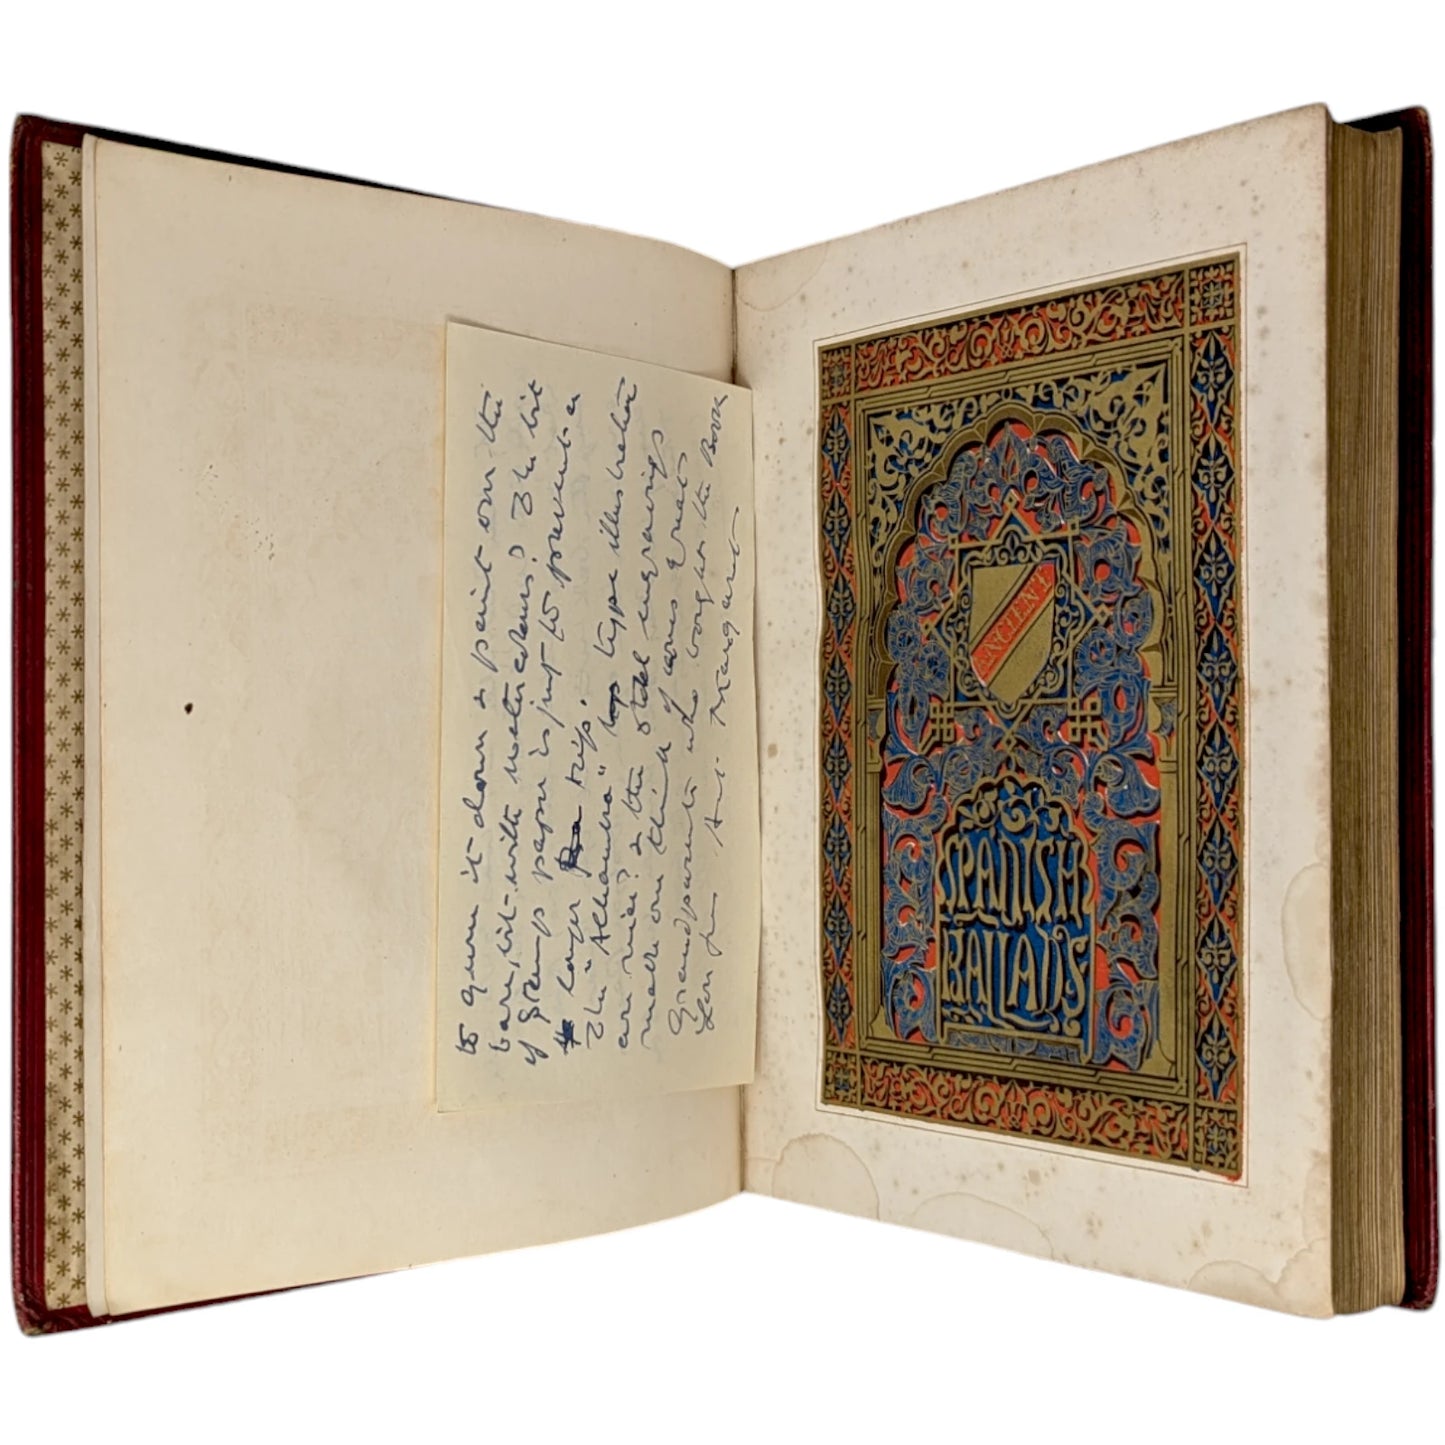 to gum it down & paint over the
bare bit with water colours? The bit
of greeny paper is just to prevent a
longer trip.
The "Alhambra" type illustrations
are nice? & the steel engravings
make one think of ones Great
Grandparents who bought the Book
Love from Aut. Margaret
ANCIENT
SPANISH
BALLADS